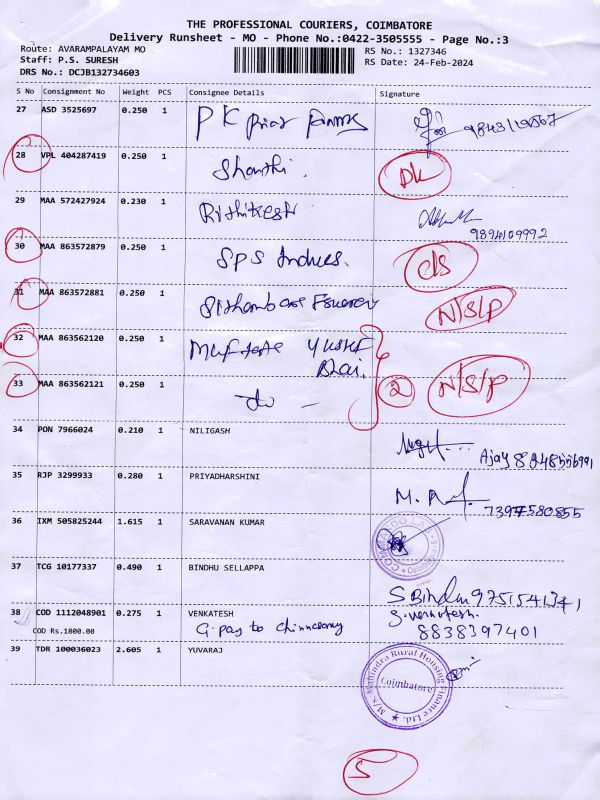 THE PROFESSIONAL COURIERS, COIMBATORE
Delivery Runsheet - MO - Phone No.:0422-3505555 - Page No.:3
Route: AVARAMPALAYAM MO
RS No.: 1327346
Staff: P.S. SURESH
RS Date: 24-Feb-2024
DRS No.: DCJB132734603
S No Consignment No Weight PCS Consignee Details Signature
27 ASD 3525697 0.250 1 P K
28 VPL 404287419 0.250 1 Shanthi. DL
29 MAA 572427924 0.230 1 Rithikesh
9894109992
30 MAA 863572879 0.250 1 SPS C/S
31 MAA 863572881 0.250 1 N/S/P
32 MAA 863562120 0.250 1 Yusuf
Bhai.
33 MAA 863562121 0.250 1 do - 2 N/S/P
34 PON 7966024 0.210 1 NILIGASH Ajay
35 RJP 3299933 0.280 1 PRIYADHARSHINI M.
7397580855
36 IXM 505825244 1.615 1 SARAVANAN KUMAR
37 TCG 10177337 0.490 1 BINDHU SELLAPPA
S Bindhu 9751541341
38 COD 1112048901 0.275 1 VENKATESH S. Venkatesh.
COD Rs.1800.00 G. pay to Chinnasamy 8838397401
39 TDR 100036023 2.605 1 YUVARAJ
M/s. Mahindra Rural Housing Finance Ltd.
Coimbatore
5